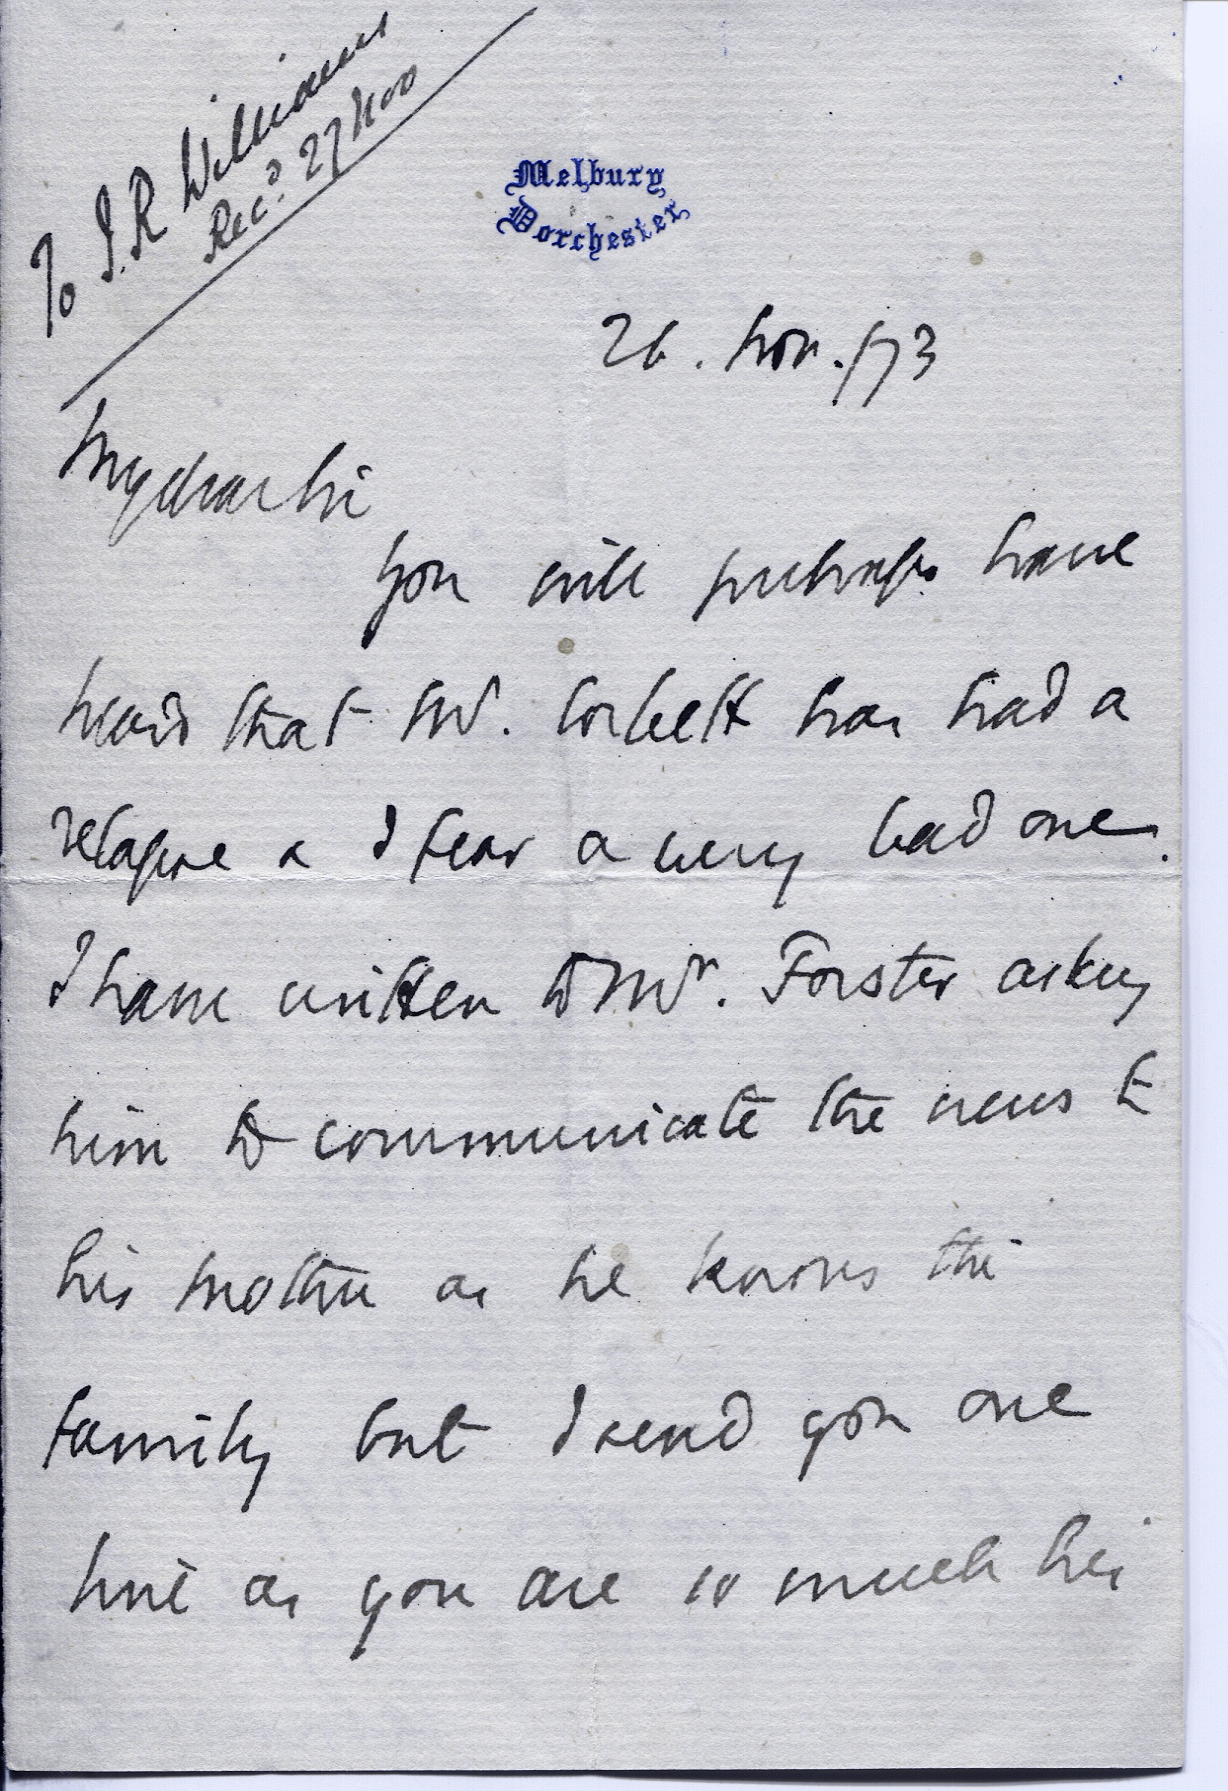 To I. R Williams
Recd. 27 Nov
Melbury
Dorchester
26. Nov. /73
My dear Sir
You will perhaps have
heard that Mr. Corbett has had a
relapse & I fear a very bad one.
I have written to Mr. Forster asking
him to communicate the news to
his mother as he knows the
family but I send you one
line as you are so much his